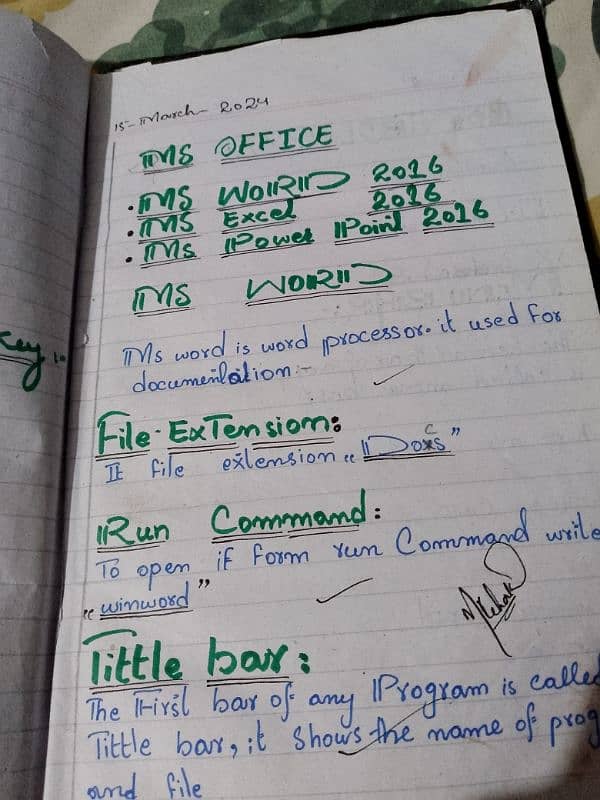 15-March-2024
MS OFFICE
• MS WORD 2016
• MS Excel 2016
• Ms Power Point 2016
MS WORD
Key
Ms word is word processor. it used for
documentation:-
File-ExTension:
It file extension "Docxs"
Run Command:
To open if form run Command write
"winword"
Tittle bar:
The First bar of any Program is called
Tittle bar, it shows the name of prog
and file